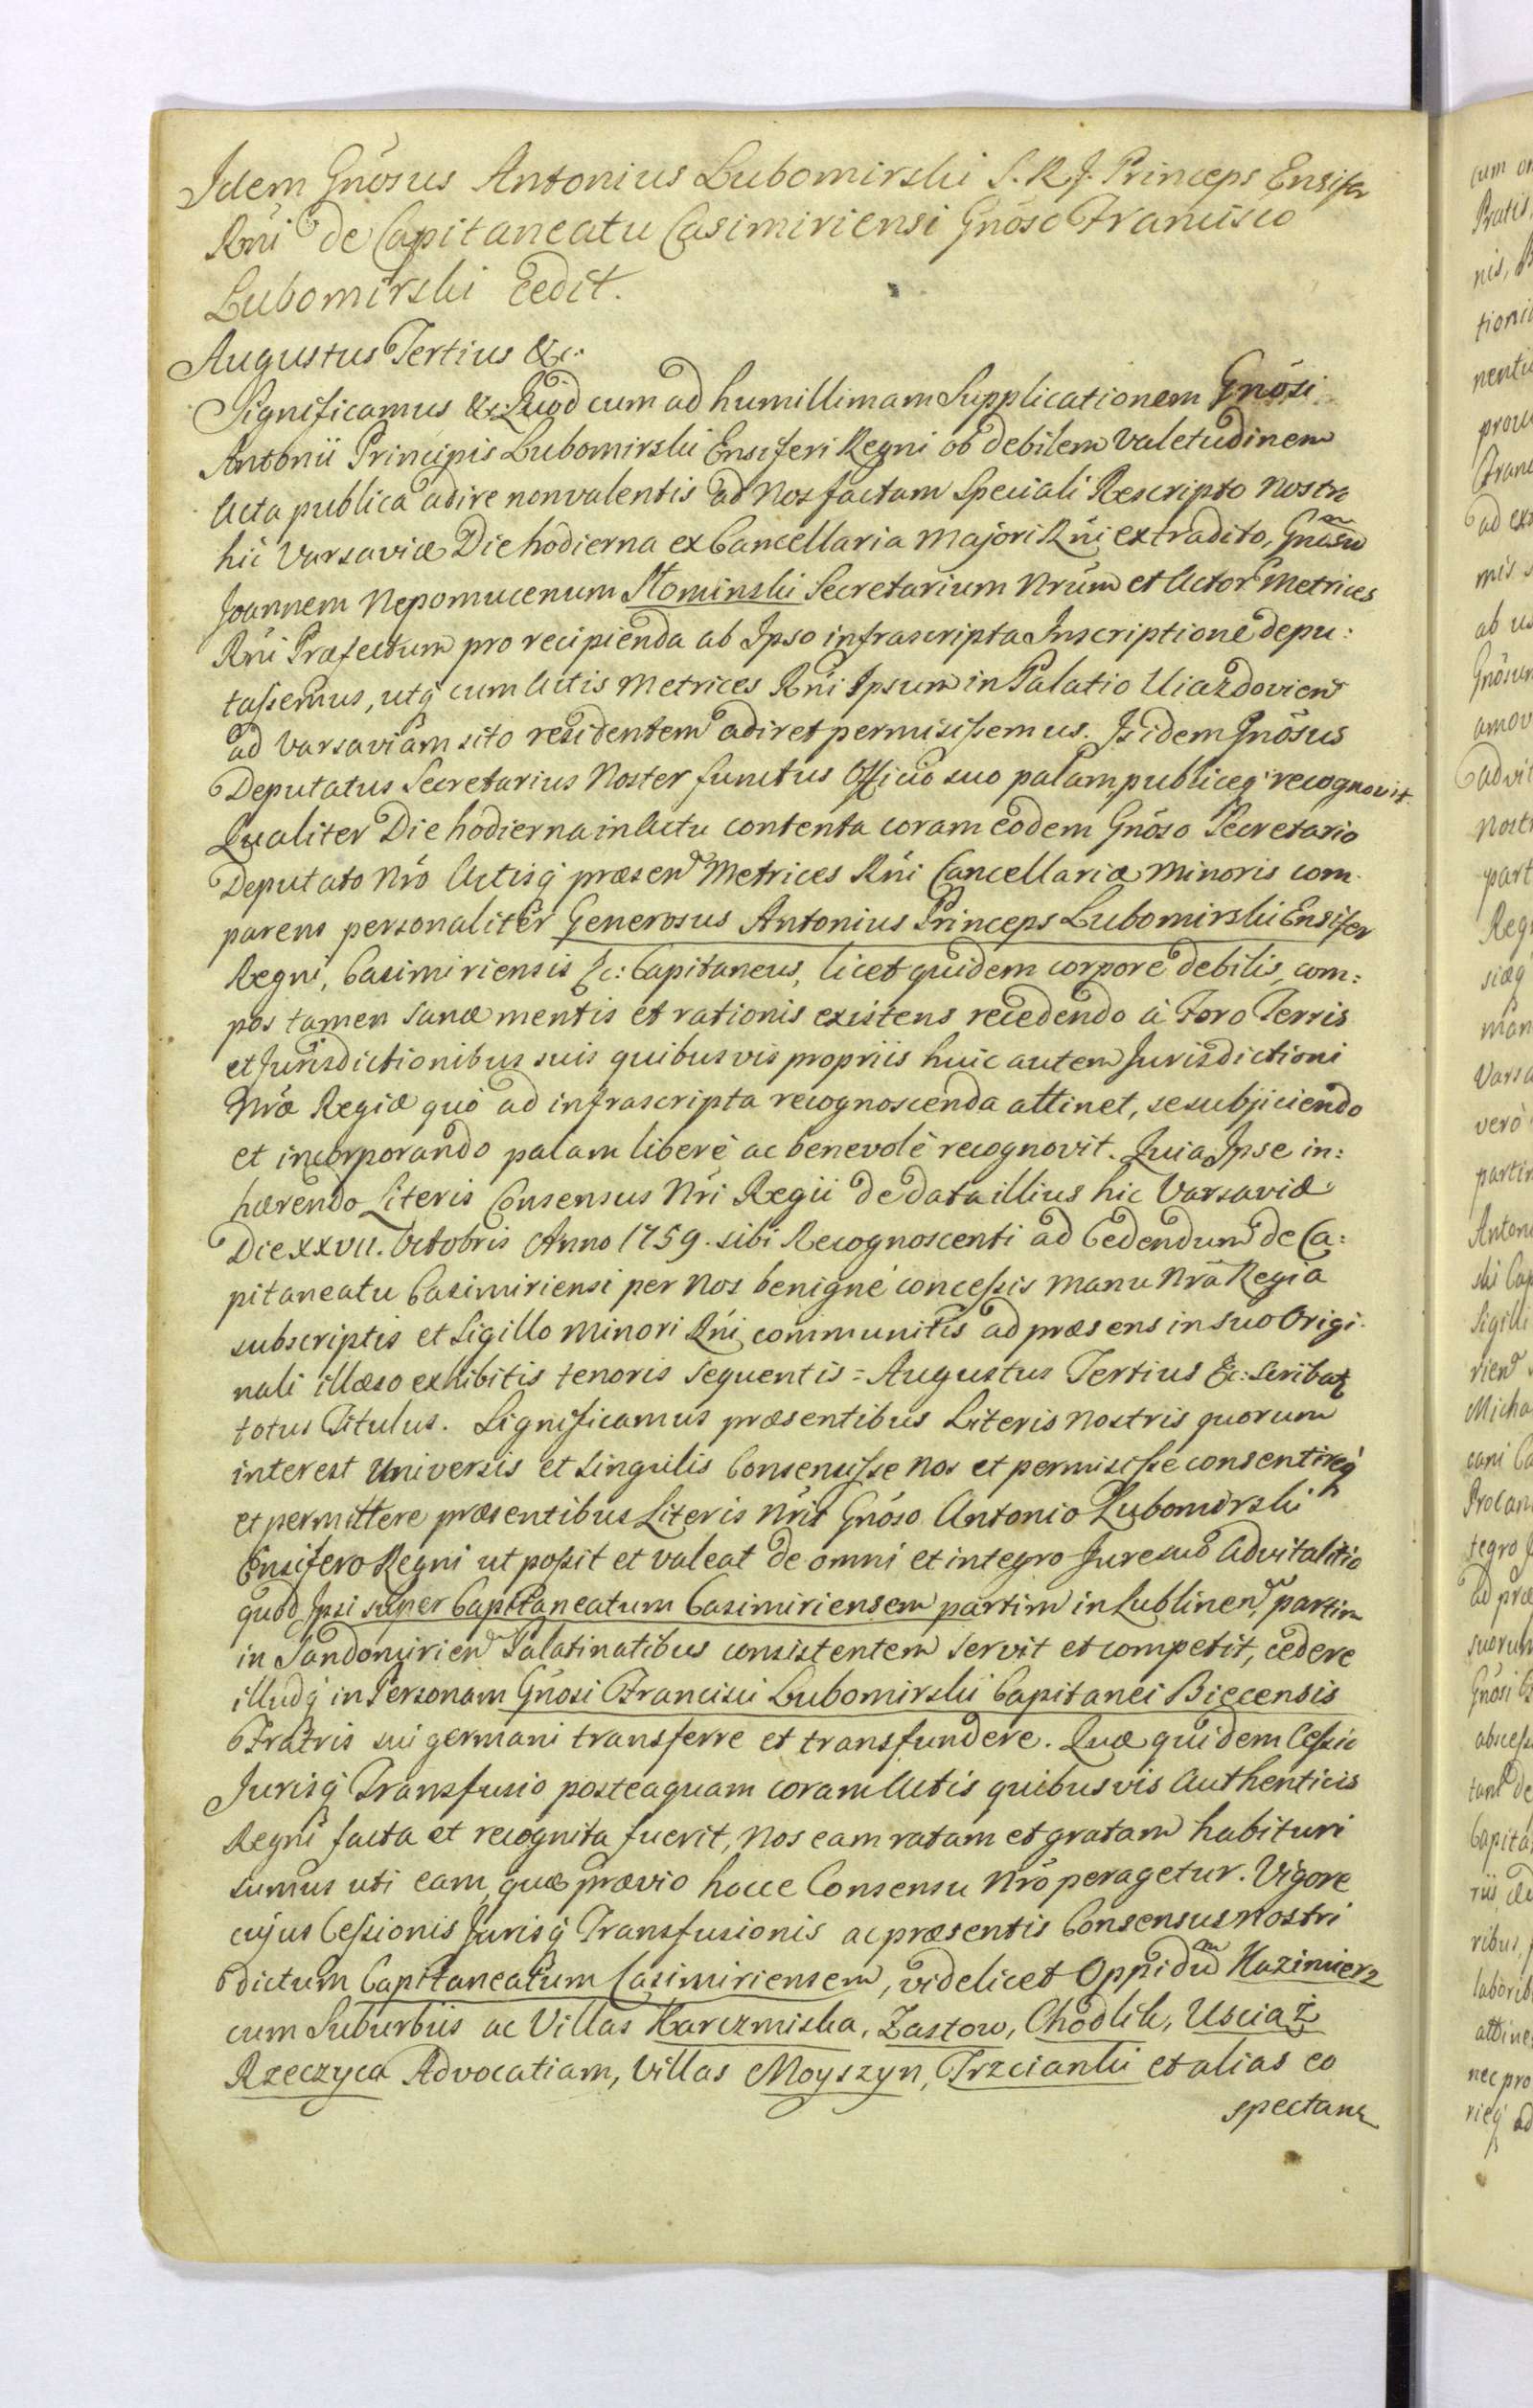 Idem Gnõsus Antonius Lubomirski S. R. J. Princeps Ensifer
Rñi de Capitaneatu Casimiriensi Gnõso Francisco
Lubomirski Cedit.
Augustus Tertius &c:
Significamus &c: Quod cum ad humillimam Supplicationem Gnõsi
Antonii Principis Lubomirski Ensiferi Regni ob debilem valetudinem
Acta publica adire non valentis ad Nos factam Speciali Rescripto Nostro
hic Varsaviæ Die hodierna ex Cancellaria Majori Rñi extradito, Gnõsum
Joannem Nepomucenum Słominski Secretarium Nrum et Actor Metrices
Rñi Præfectum pro recipienda ab Ipso infrascripta Inscriptione depu:
taſsemus, utq́ cum Actis Metrices Rñi Ipsum in Palatio Uiazdovien
ad Varsaviam sito residentem adiret permisiſsemus. Is idem Gnõsus
Deputatus Secretarius Noster functus Officio suo palam publiceq́ recognovit.
Qualiter Die hodierna in Actu contenta coram eodem Gnõso Secretario
Deputato Nrõ Actisq́ præsen Metrices Rñi Cancellariæ Minoris com
parens personaliter Generosus Antonius Princeps Lubomirski Ensifer
Regni, Casimiriensis &c: Capitaneus, licet quidem corpore debilis, com:
pos tamen sanæ mentis et rationis existens recedendo à Foro Terris
et Jurisdictionibus suis quibusvis propriis huic autem Jurisdictioni
Nræ Regiæ quó ad infrascripta recognoscenda attinet, se subjiciendo
et incorporando palam liberè ac benevolè recognovit. Quia Ipse in:
hærendo Literis Consensus Nri Regii de data illius hic Varsaviæ
Die XXVII. Octobris Anno 1759. sibi Recognoscenti ad Cedendum de Ca:
pitaneatu Casimiriensi per Nos benigné conceſsis manu Nrã Regia
subscriptis et Sigillo Minori Rñi communitis ad præsens in suo Origi
nali illæso exhibitis tenoris sequentis = Augustus Tertius &c: scribat
totus Titulus. Significamus præsentibus Literis Nostris quorum
interest Universis et Singulis Consensiſse Nos et permisiſse consentireq́
et permittere præsentibus Literis Nris Gnõso Antonio Lubomirski
Ensifero Regni ut poſsit et valeat de omni et integro Jure suo Advitalitio
quod Ipsi super Capitaneatum Casimiriensem partim in Lublinen, partim
in Sandomirien Palatinatibus consistentem servit et competit, cedere
illudq́ in Personam Gnõsi Francisci Lubomirski Capitanei Biecensis
Fratris sui germani transferre et transfundere. Quæ quidem Ceſsio
Jurisq́ Transfusio posteaquam coram Actis quibusvis Authenticis
Regni facta et recognita fuerit, Nos eam ratam et gratam habituri
sumus uti eam, quæ prævio hocce Consensu Nrõ peragetur. Vigore
cujus Ceſsionis Jurisq́ Transfusionis ac præsentis Consensus Nostri
dictum Capitaneatum Casimiriensem, videlicet Oppidum Kazimierz
cum Suburbiis ac Villas Karczmiska, Zastow, Chodlik, Usciaż
Rzeczyca Advocatiam, Villas Moyszyn, Trzcianki et alias eo
spectan